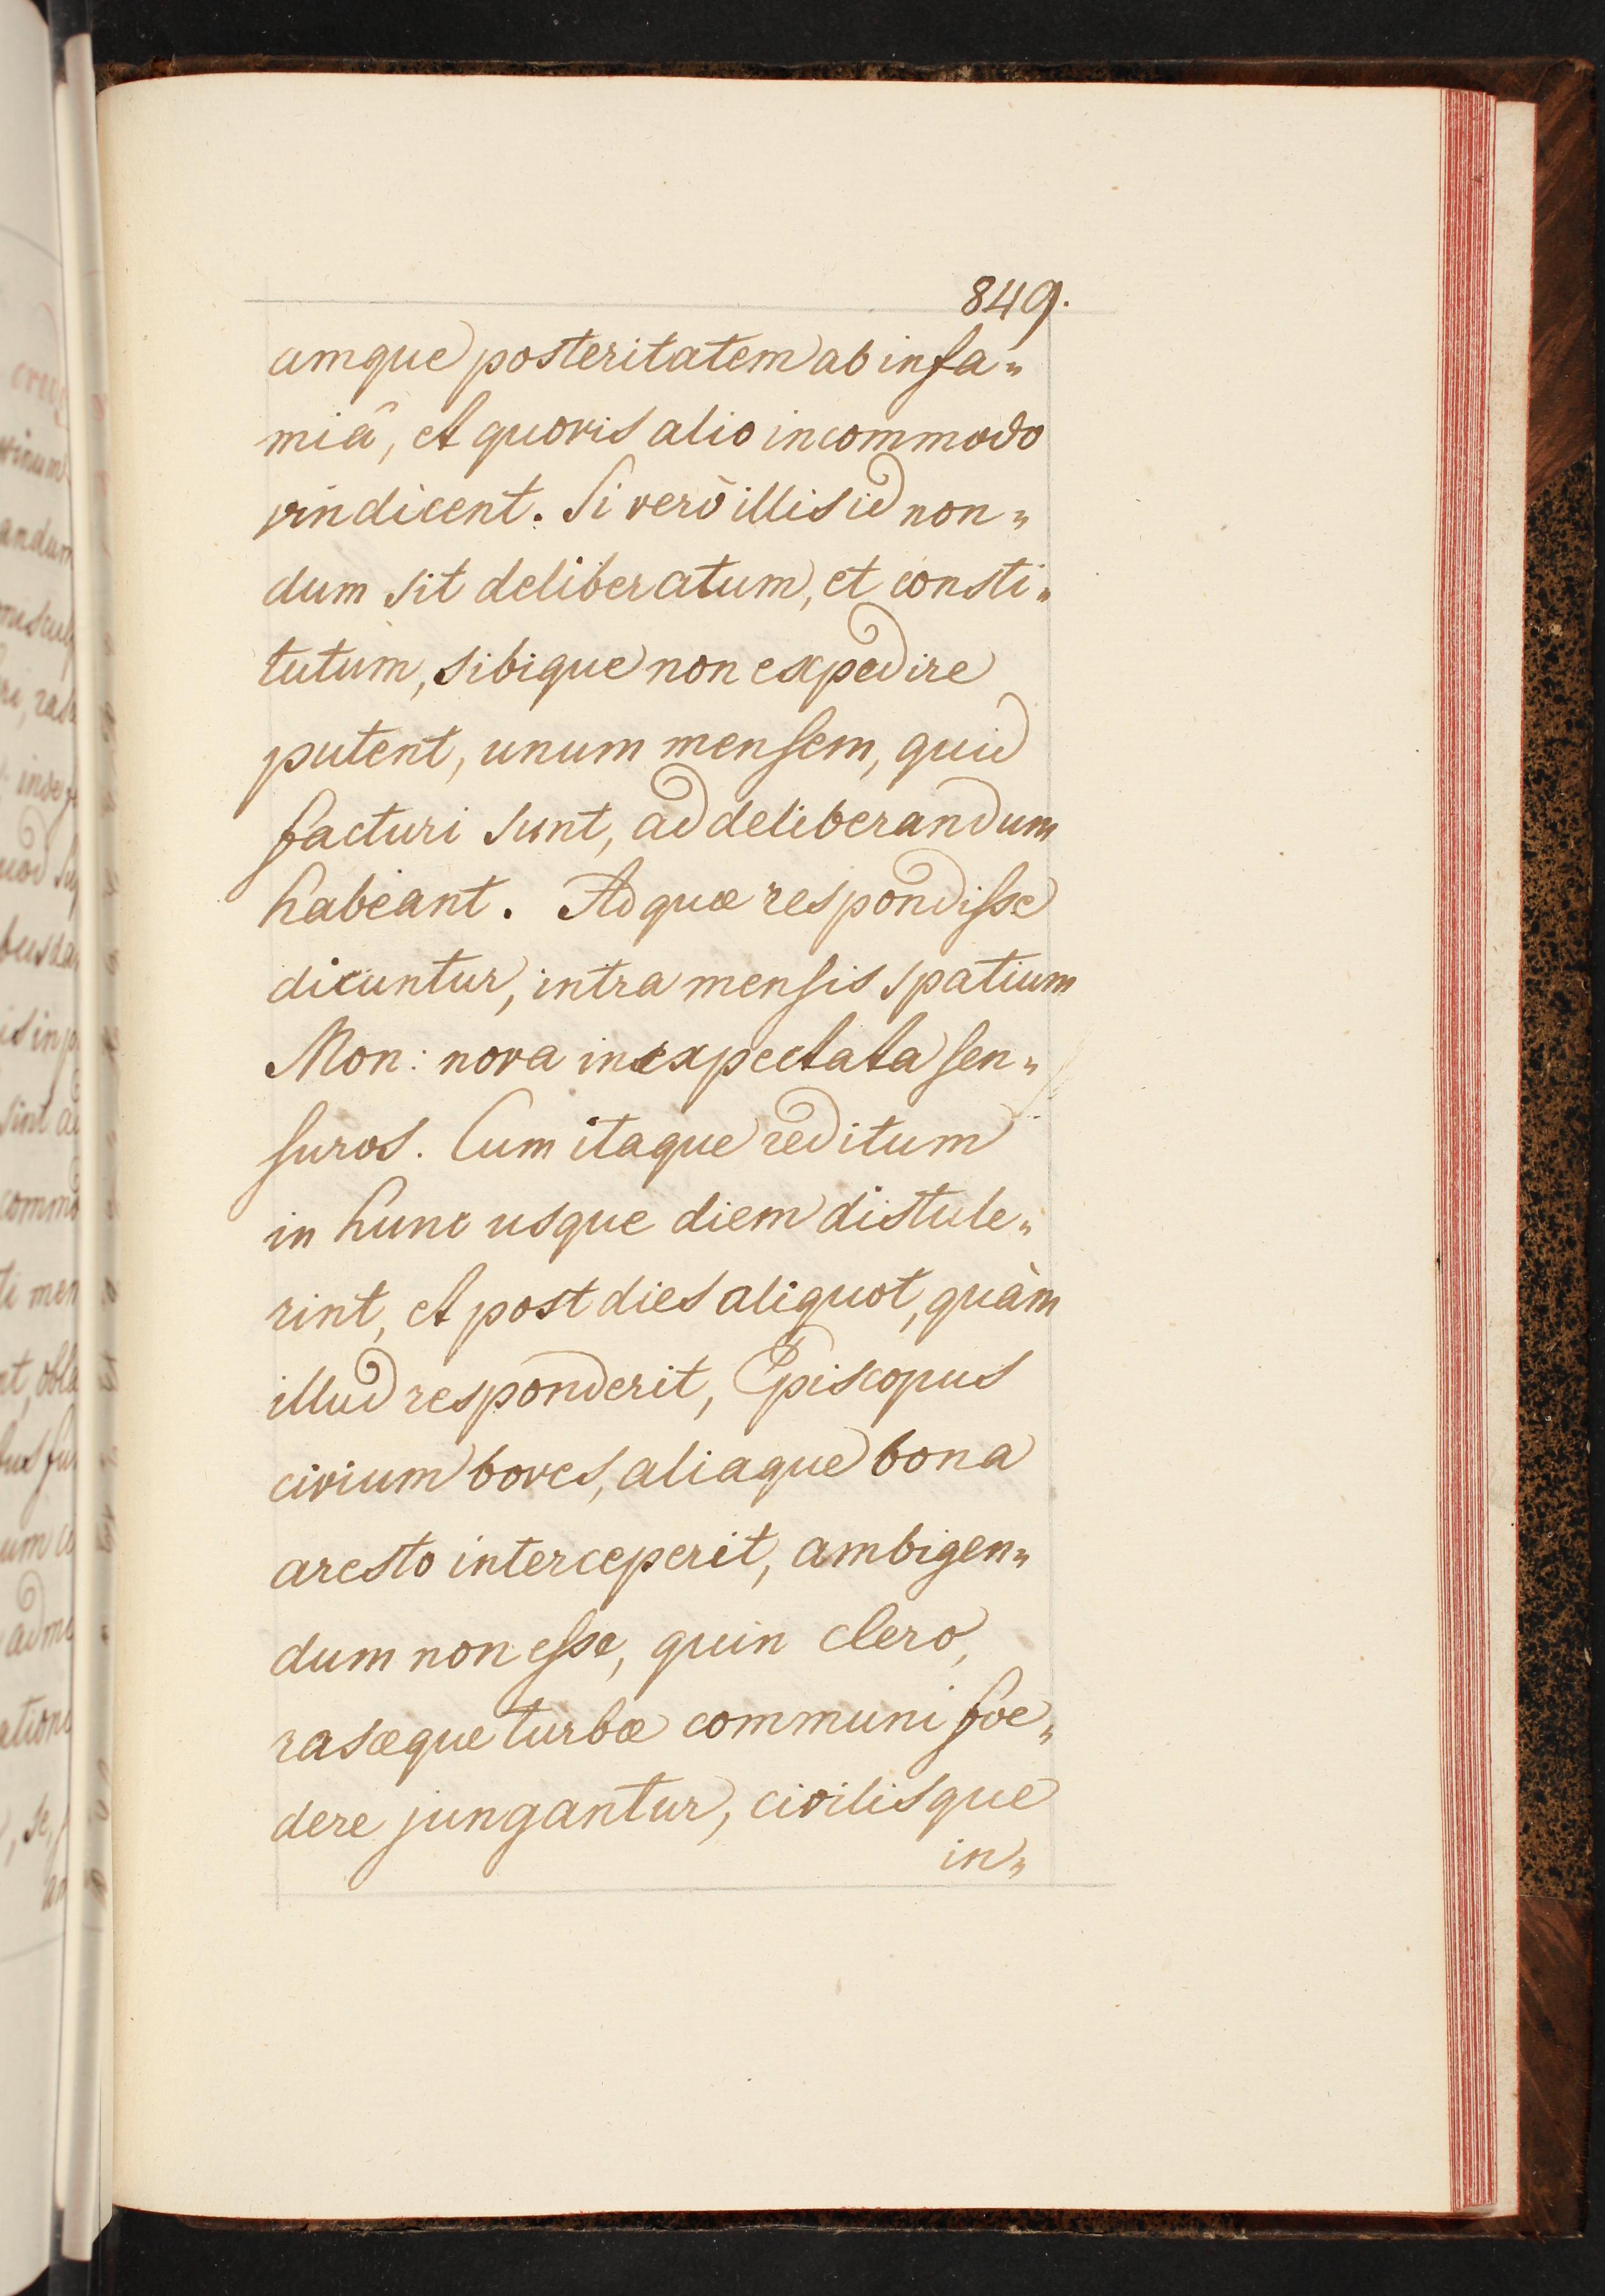 849.
amque posteritatem ab infa„
miâ, et quovis alio incommodo
vindicent. Si verò illis id non„
dum sit deliberatum, et consti„
tutum, sibique non expedire
putent, unum mensem, quid
facturi sunt, ad deliberandum
habeant. Ad quæ respondisse
dicuntur, intra mensis spatium
Mon: nova inexpectata sen„
suros. Cum itaque reditum
in hunc usque diem distule„
rint, et post dies aliquot, quàm
illud responderit, Episcopus
civium boves, aliaque bona
aresto interceperit, ambigen„
dum non esse, quin clero,
rasæque turbæ communi foe„
dere jungantur, civilisque
in„